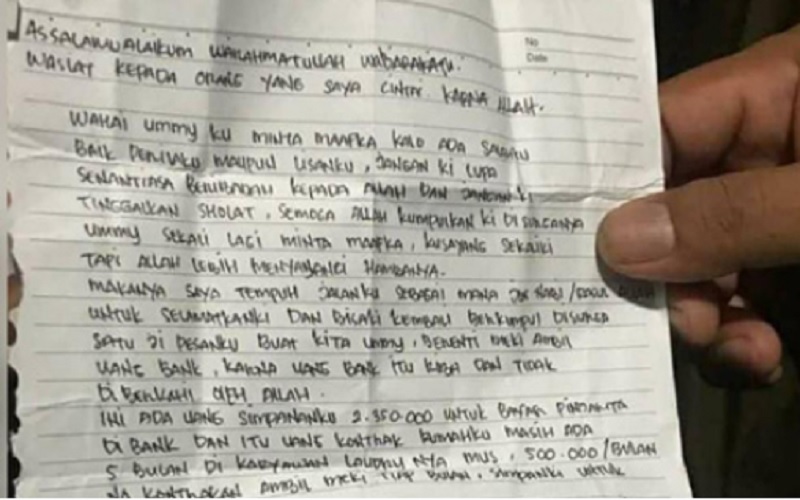 ASSALAMUALAIKUM WARAHMATULLAH WABARAKATU.
No
Date
WASIAT KEPADA ORANG YANG SAYA CINTAI KARNA ALLAH.
WAHAI UMMY KU MINTA MAAFKA KALO ADA SALAHKU
BAIK PERILAKU MAUPUN LISANKU, JANGAN KI LUPA
SENANTIASA BERIBADAH KEPADA ALLAH DAN JANGAN KI
TINGGALKAN SHOLAT, SEMOGA ALLAH KUMPULKAN KI DI SURGANYA
UMMY SEKALI LAGI MINTA MAAFKA, KUSAYANG SEKALIKI
TAPI ALLAH LEBIH MENYAYANGI HAMBANYA.
MAKANYA SAYA TEMPUH JALANKU SEBAGAI MANA NABI/RASUL ALLAH
UNTUK SELAMATKANKI DAN BISAKI KEMBALI BERKUMPUL DISURGA
SATU JI PESANKU BUAT KITA UMMY, BERENTI MEKI AMBIL
UANG BANK, KARNA UANG BANK ITU RIBA DAN TIDAK
DI BERKAHI OLEH ALLAH.
INI ADA UANG SIMPANANKU 2.350.000 UNTUK BAYAR PINJAMANTA
DI BANK DAN ITU UANG KONTRAK RUMAHKU MASIH ADA
5 BULAN DI KARYAWAN LAUNDRY NYA MUS, 500.000/BULAN
NA KONTRAKAN AMBIL MEKI TIAP BULAN, SIMPANKI UNTUK